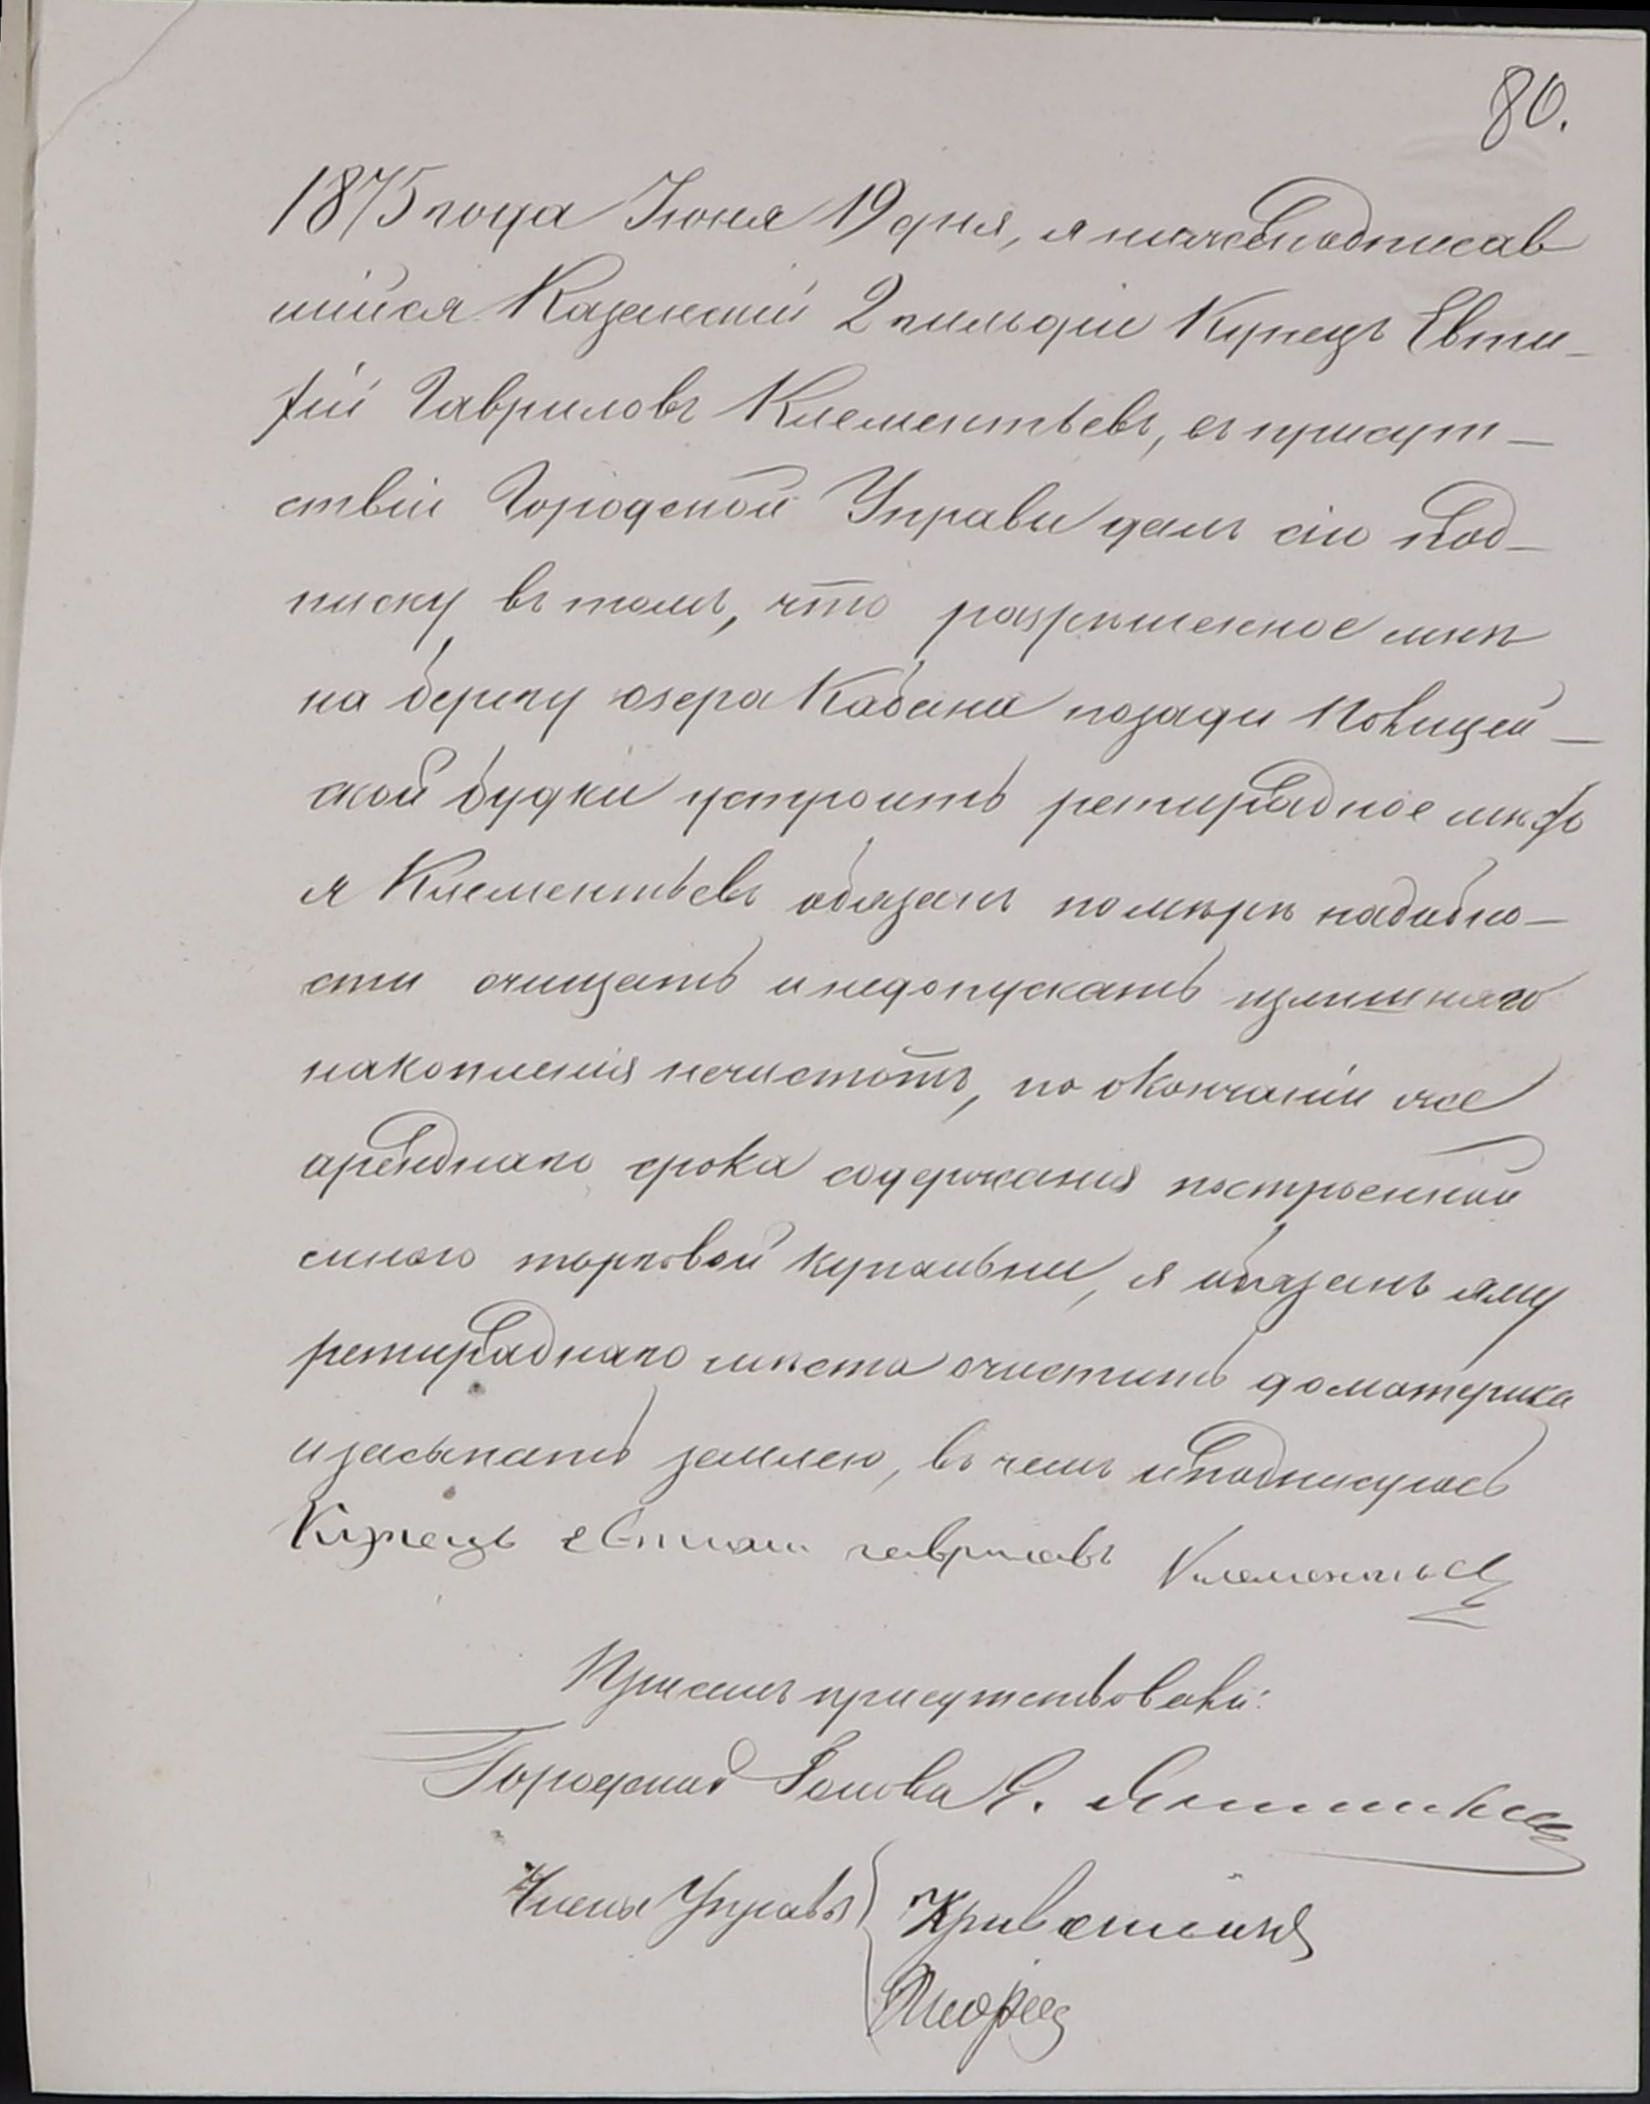 80.
1875 года Іюня 19 дня, я нижеподписав
шійся Казанскій 2 гильдіи Купецъ Евти-
фій Гавриловъ Клементьевъ, въ присут-
ствіи Городской Управы далъ сію под-
писку въ томъ, что разрѣшенное мнѣ
на берегу озера Кабана позади Полицей-
ской будки устроить ретирадное мѣсто
я Клементьевъ обязанъ по мѣрѣ надобно-
сти очищать и недопускать излишняго
накопленія нечистотъ, по окончаніи же
аренднаго срока содержанія построенной
мною торговой купальни, я обязанъ яму
ретираднаго мѣста очистить до материка
и засыпать землею, въ чемъ и подписуюсь
Купецъ гавриловъ Клементьев
При семъ присутствовали:
Городской Голова
Члены Управы